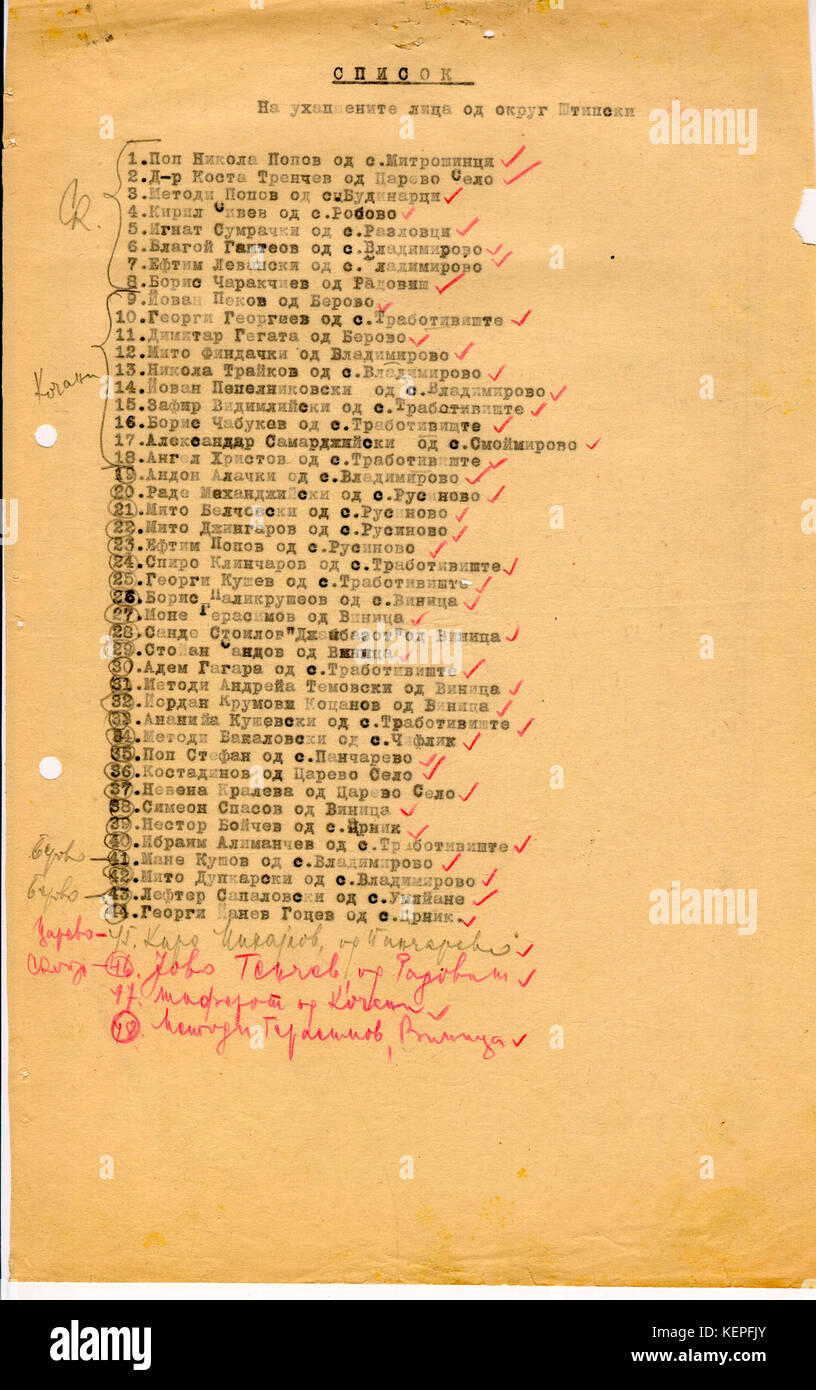 СПИСОК
На ухапшените лица од округ Штипски
1.Поп Никола Попов од с.Митрошинци
2.Д-р Коста Тренчев од Царево Село
3.Методи Попов од с.Будинарци
4.Кирил Сивев од с.Робово
5.Игнат Сумрачки од с.Разловци
6.Благој Гаштеов од с.Владимирово
7.Ефтим Левански од с.Владимирово
8.Борис Чаракчиев од Радовиш
9.Йован Пеков од Берово
10.Георги Георгиев од с.Тработивиште
11.Димитар Гегата од Берово
12.Мито Финдачки од Владимирово
13.Никола Трайков од с.Владимирово
14.Йован Пепелниковски од с.Владимирово
15.Зафир Видимлийски од с.Тработивиште
16.Борис Чабукев од с.Тработивиште
17.Александар Самарджийски од с.Смоймирово
18.Ангел Христов од с.Тработивиште
19.Андон Алачки од с.Владимирово
20.Раде Механджийски од с.Русиново
21.Мито Белчовски од с.Русиново
22.Мито Джингаров од с.Русиново
23.Ефтим Попов од с.Русиново
24.Спиро Клинчаров од с.Тработивиште
25.Георги Кушев од с.Тработивиште
26.Борис Паликрушеов од с.Виница
27.Моне Герасимов од Виница
28.Санде Стоилов"Джамбазот"од Виница
29.Стојан Сандов од Виница
30.Адем Гагара од с.Тработивиште
31.Методи Андрейа Темовски од Виница
32.Йордан Крумови Коцанов од Виница
33.Ананийа Кушевски од с.Тработивиште
34.Методи Бакаловски од с.Чифлик
35.Поп Стефан од с.Панчарево
36.Костадинов од Царево Село
37.Невена Кралева од Царево Село
38.Симеон Спасов од Виница
39.Нестор Бойчев од с.Црник
40.Ибраим Алиманчев од с.Тработивиште
41.Мане Кушов од с.Владимирово
42.Мито Дупкарски од с.Владимирово
43.Лефтер Сапаловски од с.Умийане
44.Георги Панев Гоцев од с.Црник.
45. Киро Михајлов, од Панчарево
46. Јово Тенчев, од Радовиш
47. Шаферот од Кочани
48. Методи Герасимов, Виница
Кочани
Берово
Берово
Царево
alamy
Image ID: KEPFJY
www.alamy.com